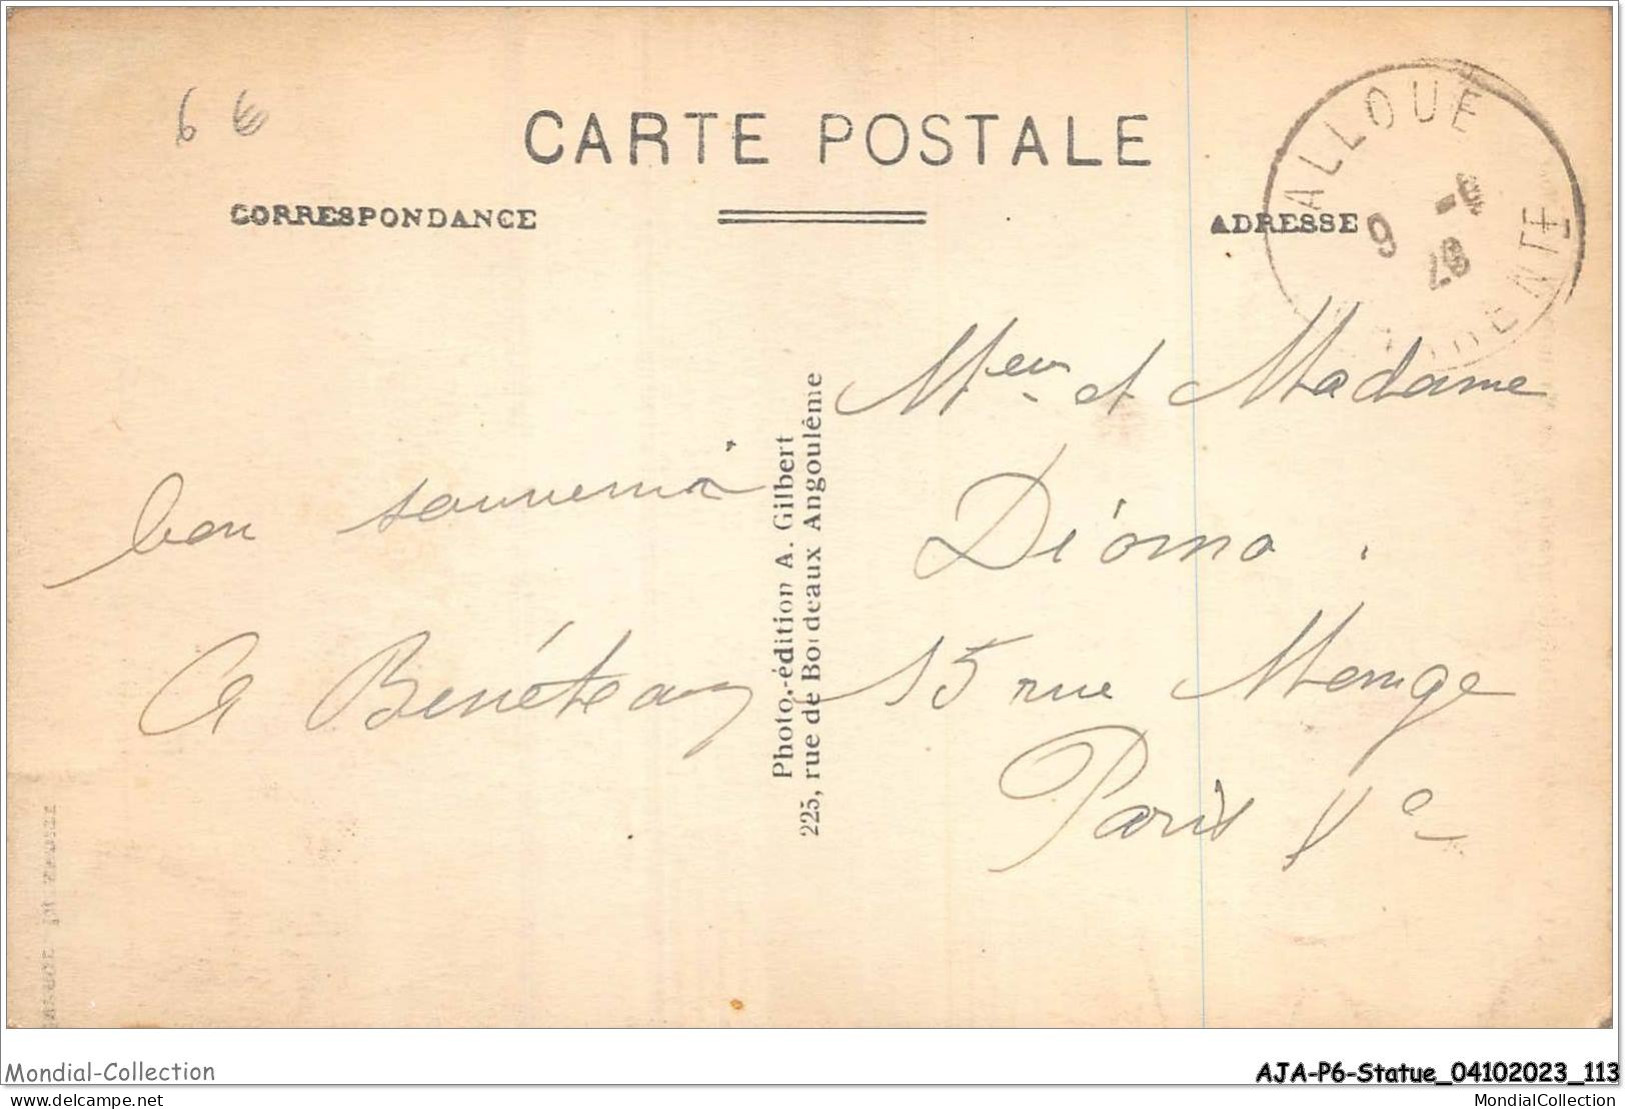 6 €
CARTE POSTALE
CORRESPONDANCE
ADRESSE
ALLOUE
9 -6
CHARENTE
Meur et Madame
Diómo.
15 rue Monge
Paris Ve
bon souvenir
A Bénéteau
Photo.-édition A. Gilbert
225, rue de Bordeaux Angoulême
Mondial-Collection
AJA-P6-Statue_04102023_113
delcampe.net
MondialCollection